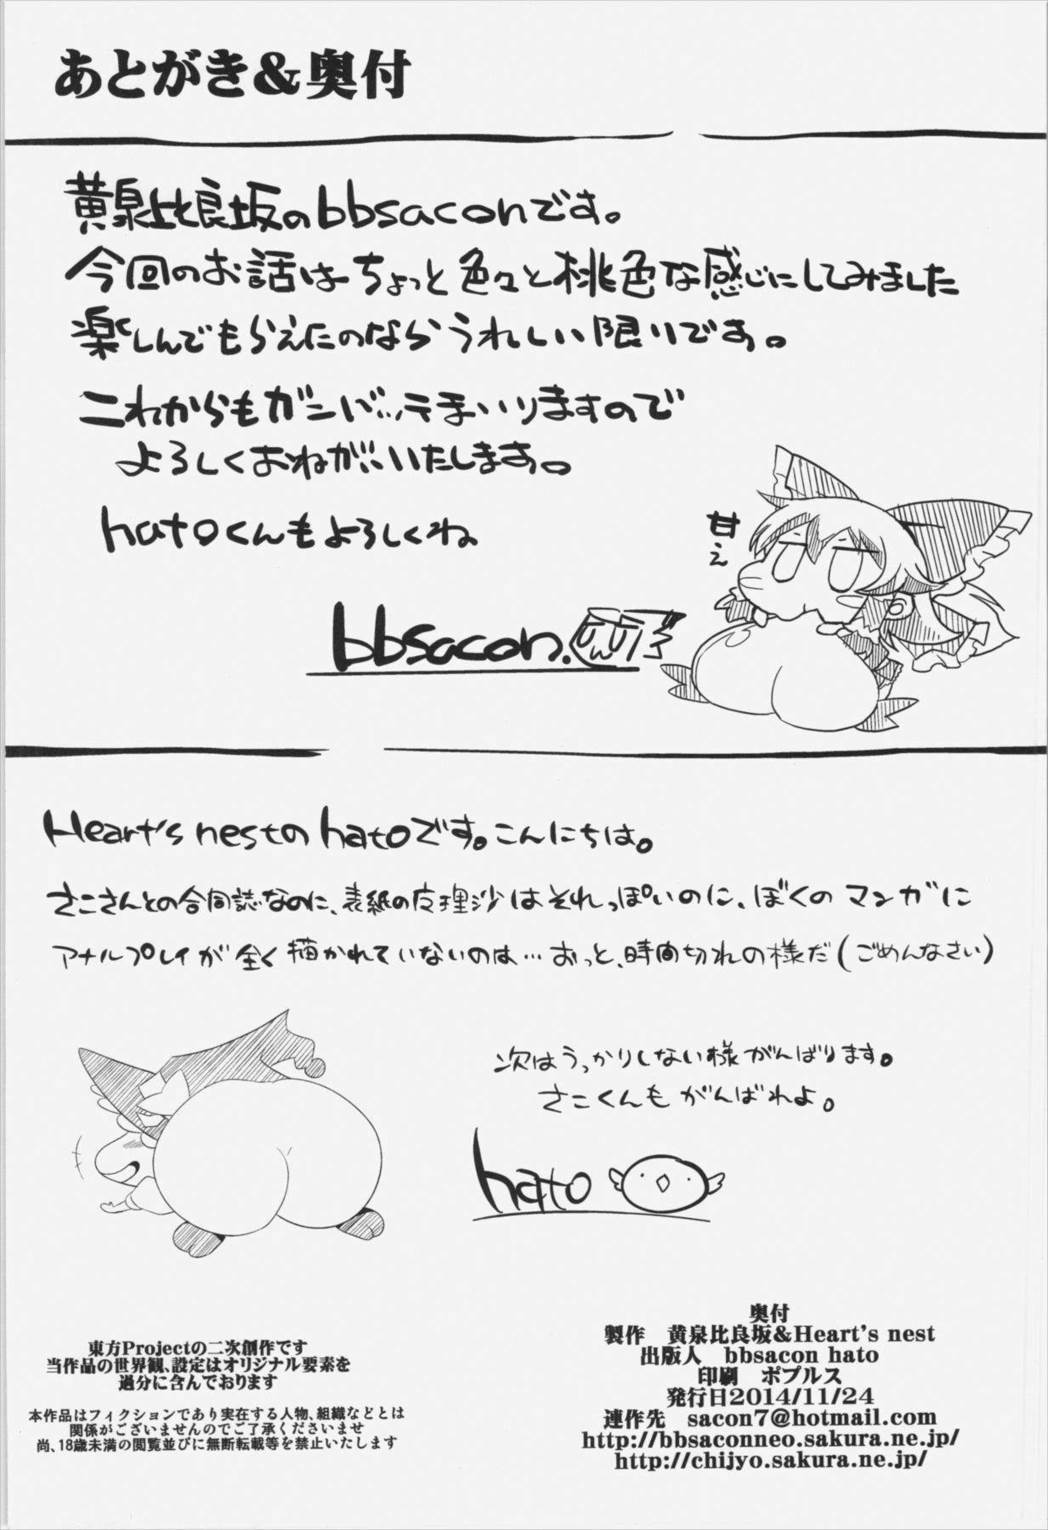 あとがき&奥付
黄泉比良坂のbbsaconです。
今回のお話はちょっと色々と桃色な感じにしてみました
楽しんでもらえたのならうれしい限りです。
これからもガンバッテまいりますので
よろしくおねがいいたします。
hatoくんもよろしくね
甘え
bbsacon.
Heart's nestの hatoです。こんにちは。
さこさんとの合同誌なのに、表紙の魔理沙はそれっぽいのに、ぼくのマンガに
アナルプレイが全く描かれていないのは…おっと、時間切れの様だ(ごめんなさい)
次はうっかりしない様がんばります。
さこくんもがんばれよ。
hato
東方Projectの二次創作です
当作品の世界観、設定はオリジナル要素を
過分に含んでおります
本作品はフィクションであり実在する人物、組織などとは
関係がございませんのでご了承くださいませ
尚、18歳未満の閲覧並びに無断転載等を禁止いたします
奥付
製作 黄泉比良坂&Heart's nest
出版人 bbsacon hato
印刷 ポプルス
発行日2014/11/24
連作先 sacon7@hotmail.com
http://bbsaconneo.sakura.ne.jp/
http://chijyo.sakura.ne.jp/